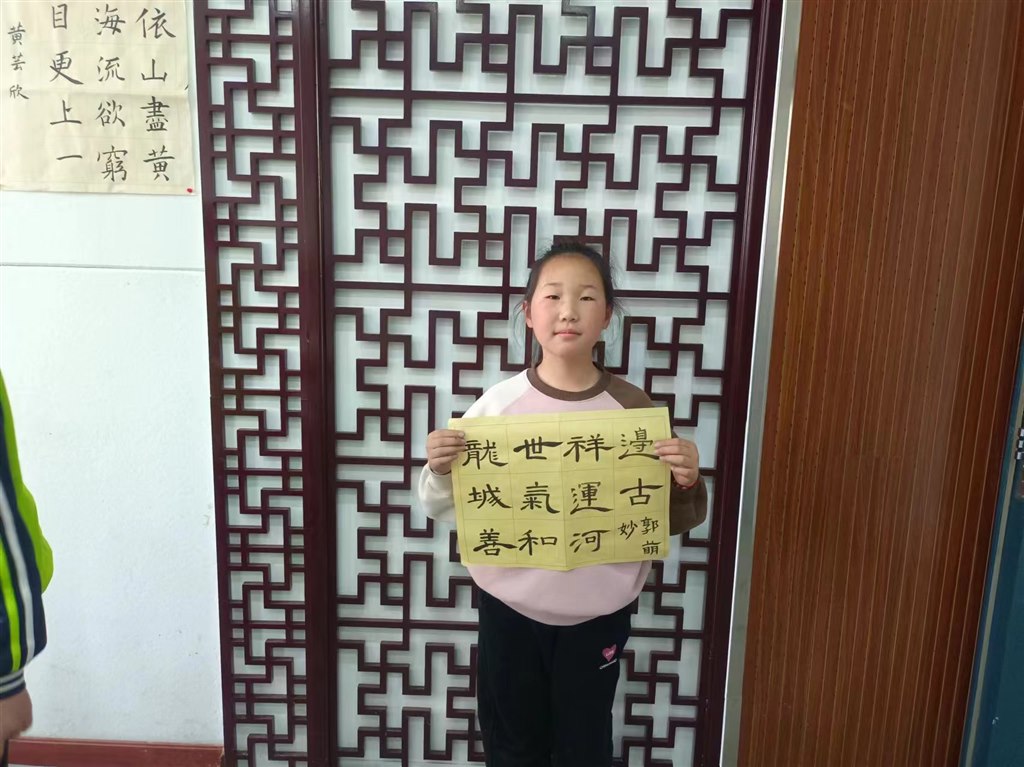 依山盡黄
海流欲窮
目更上一
黄芸欣
龍城善
世氣和
祥運河
邊古
郭萌
妙